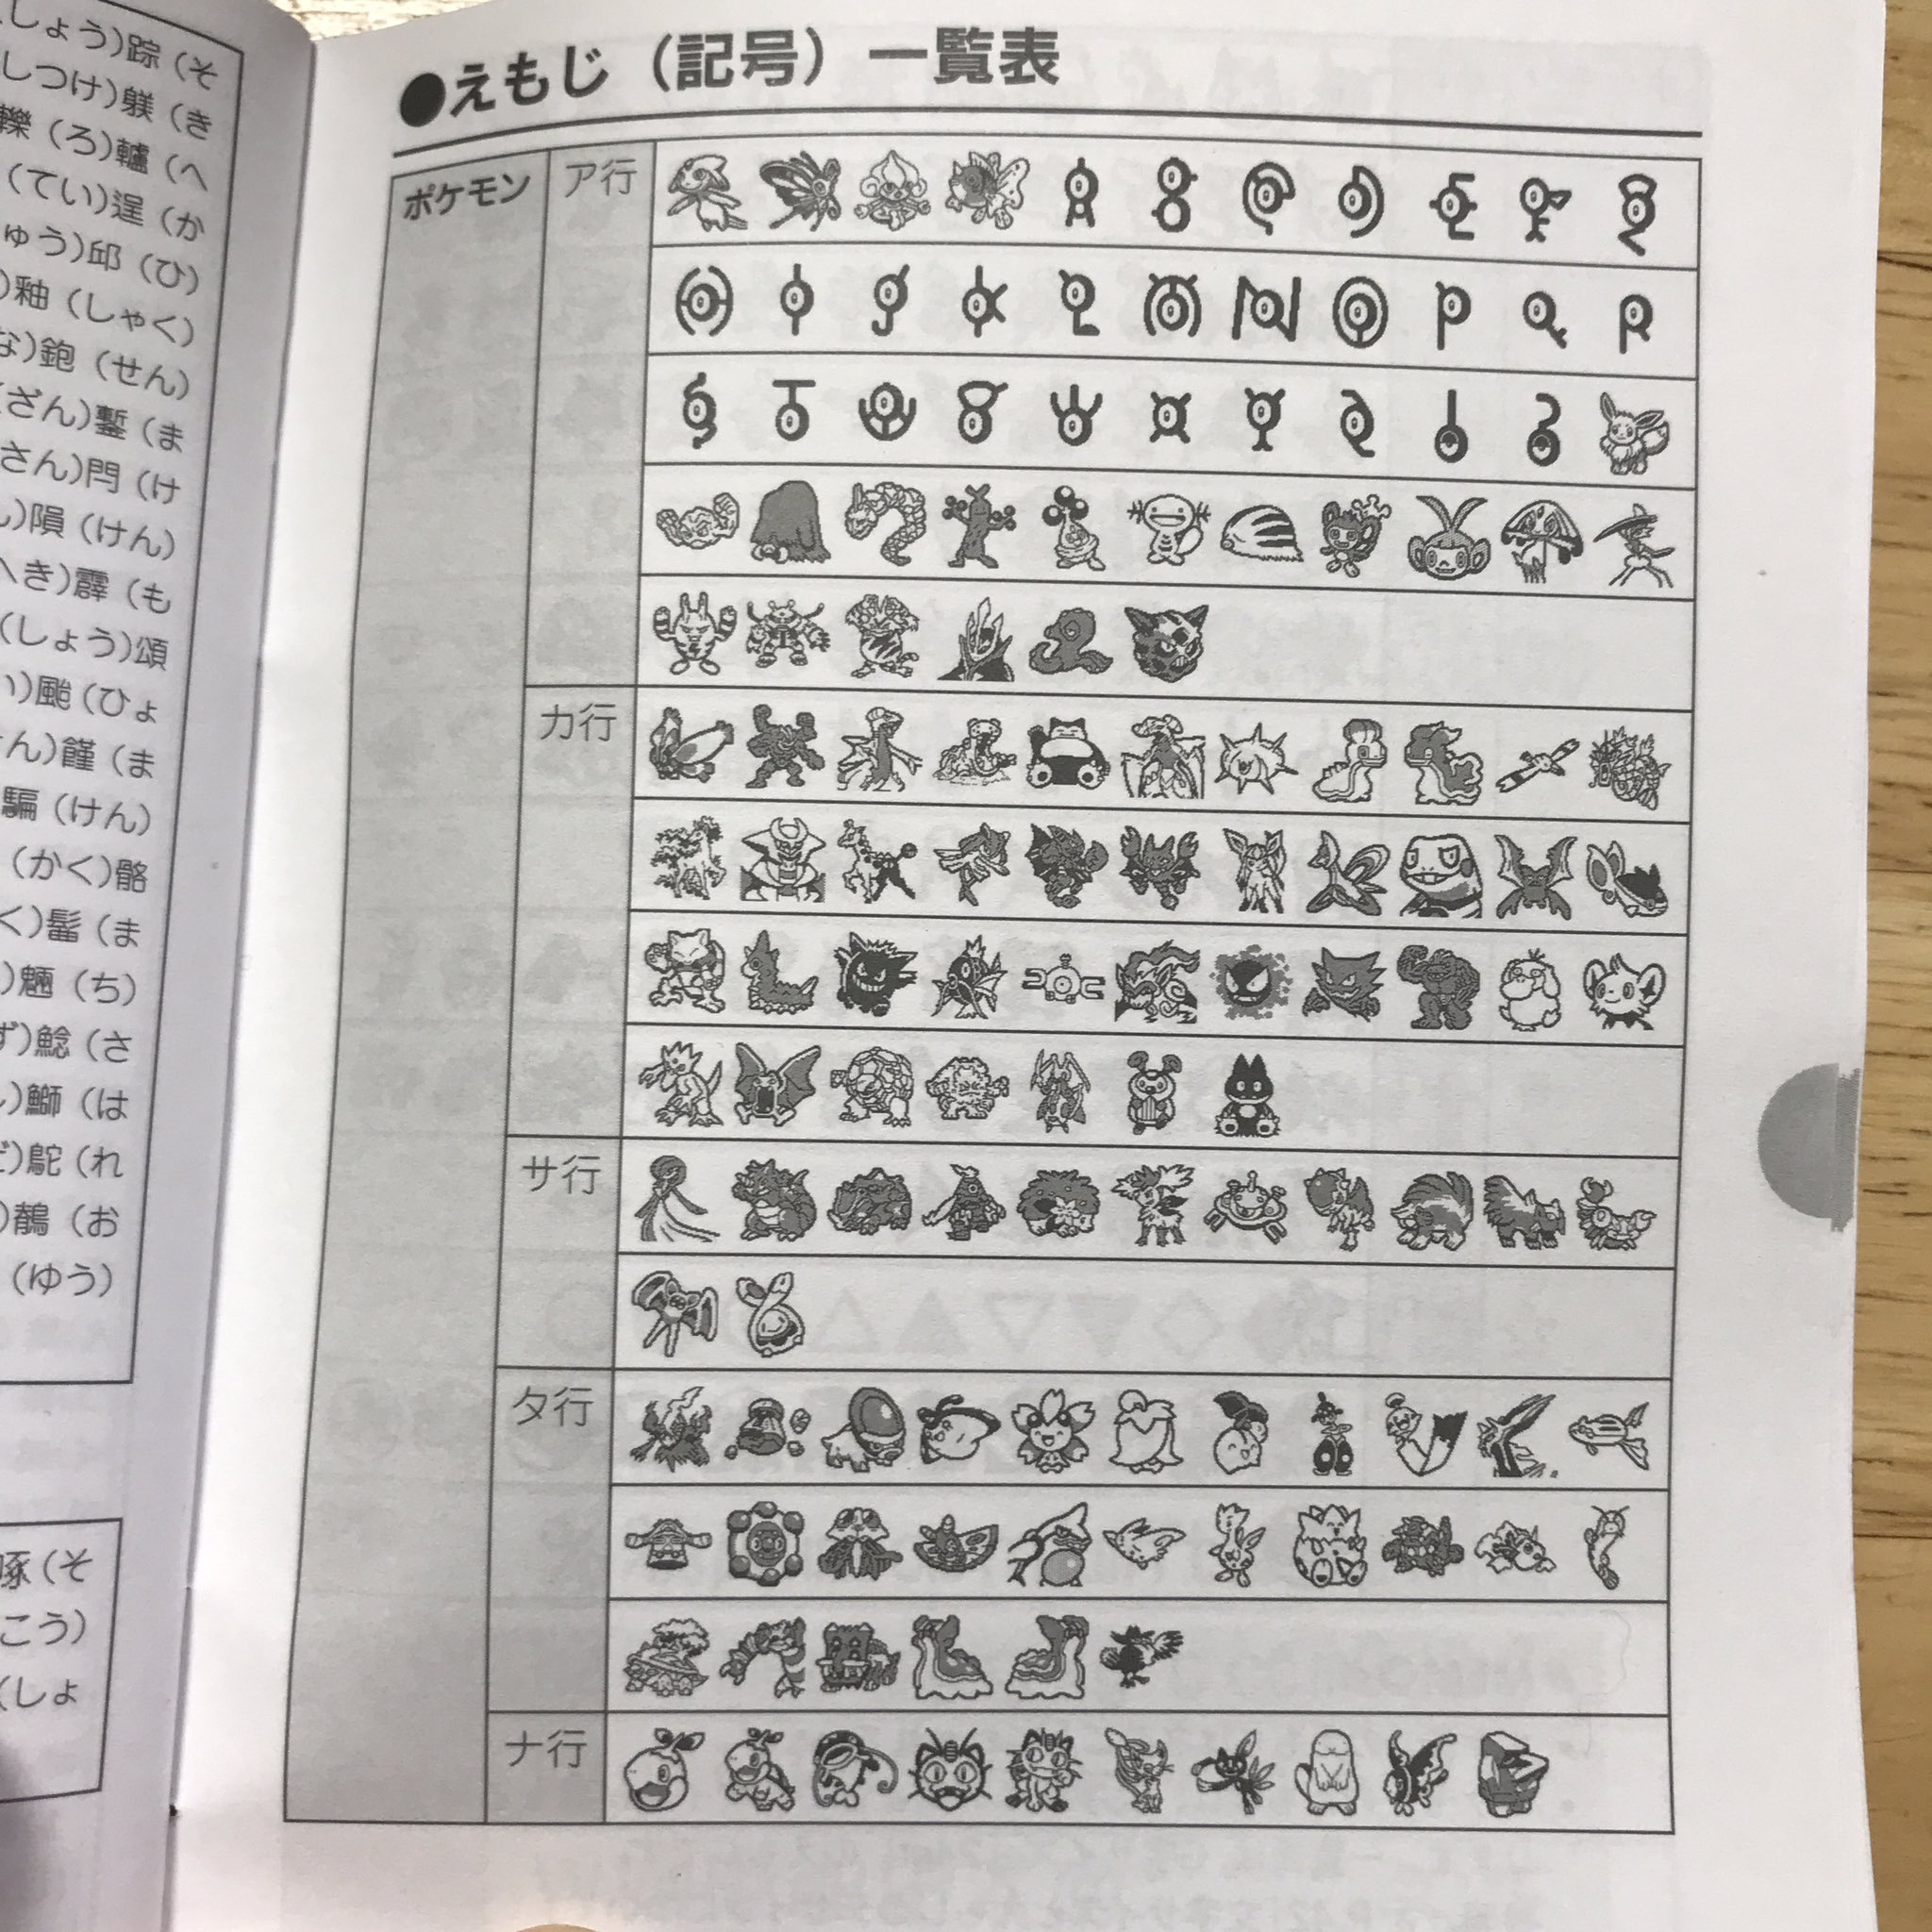 しょう)踪(そ
しつけ)躾(き
轢(ろ)轤(へ
(てい)逞(か
ゅう)邱(ひ)
)釉(しゃく)
な)鉋(せん)
ざん)鏨(ま
さん)閂(け
)隕(けん)
へき)霹(も
(しょう)頌
い)颱(ひょ
けん)饉(ま
騙(けん)
(かく)骼
く)髷(ま
)魎(ち)
ず)鯰(さ
)鰤(は
ど)鴕(れ
)鶺(お
(ゆう)
啄(そ
こう)
(しょ
●えもじ(記号)一覧表
ポケモン
ア行
カ行
サ行
タ行
ナ行